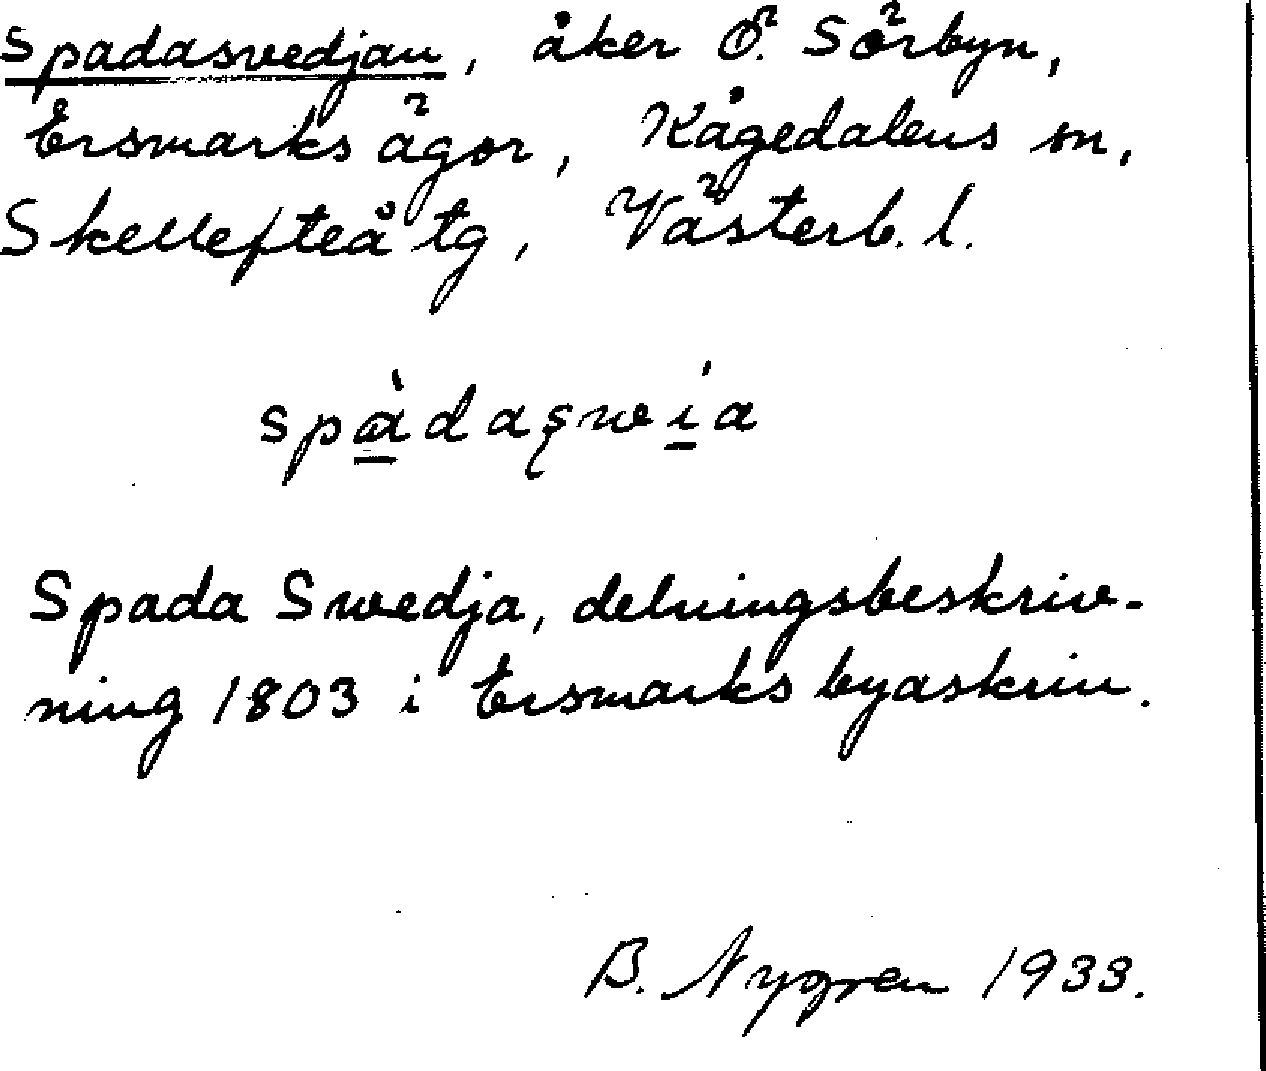 Spadasvedjan, åker Ö. Sörbyn,
Ersmarks ägor, Kågedalens sn,
Skellefteå tg, Västerb. l.
spàdaswía
Spada Swedja, delningsbeskriv-
ning 1803 i Ersmarks byaskrin.
B. Nygren 1933.